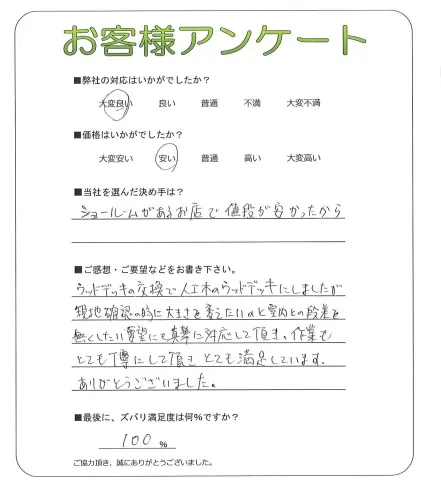 お客様アンケート
■弊社の対応はいかがでしたか？
大変良い 良い 普通 不満 大変不満
■価格はいかがでしたか？
大変安い 安い 普通 高い 大変高い
■当社を選んだ決め手は？
ショールームがあるお店で値段が安かったから
■ご感想・ご要望などをお書き下さい。
ウッドデッキの交換で人工木のウッドデッキにしましたが
現地確認の時に大きさを変えたいのと室内との段差を
無くしたい要望にも真摯に対応して頂き、作業も
とても丁寧にして頂きとても満足しています、
ありがとうございました。
■最後に、ズバリ満足度は何％ですか？
100 ％
ご協力頂き、誠にありがとうございました。